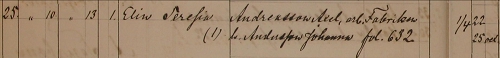 25. " 10 " 13 1. Elin Teresia Andreasson Axel, arb. Fabriken 1/4 22
(1) h. Andersson Johanna fol. 632 25 oct.